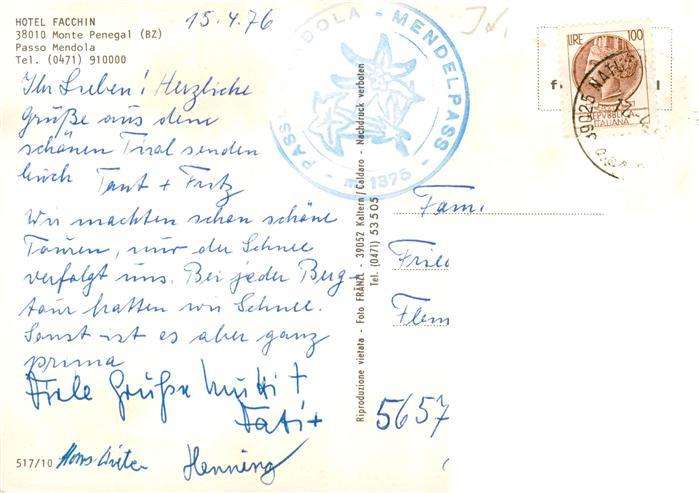 HOTEL FACCHIN
38010 Monte Penegal (BZ)
Passo Mendola
Tel. (0471) 910000
15.4.76
Ihr Lieben! Herzliche
Grüße aus dem
schönen Tirol senden
Euch Tant + Fritz
Wir machten schon schöne
Touren, nur der Schnee
verfolgt uns. Bei jeder Berg-
tour hatten wir Schnee.
Sonst ist es aber ganz
prima
Viele Grüße Mutti +
Vati +
Hans-Dieter Henning
517/10
PASS MENDOLA - MENDELPASS - PASS
m. 1375
Riproduzione vietata - Foto FRÄNZL - 39052 Kaltern/Caldaro - Nachdruck verboten
Tel. (0471) 53505
LIRE 100
REPVBBLICA
ITALIANA
39025
Fam.
Frie
Flem
5657